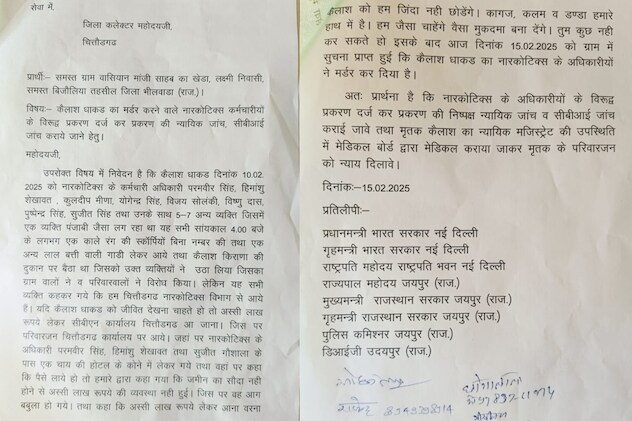 सेवा में,
जिला कलेक्टर महोदयजी,
चित्तौडगढ
प्रार्थीः– समस्त ग्राम वासियान मांजी साहब का खेडा, लक्ष्मी निवासी,
समस्त बिजौलिया तहसील जिला भीलवाडा (राज.)।
विषयः– कैलाश धाकड का मर्डर करने वाले नारकोटिक्स कर्मचारीयों
के विरूद्ध प्रकरण दर्ज कर प्रकरण की न्यायिक जांच, सीबीआई
जांच कराये जाने हेतु।
महोदयजी,
उपरोक्त विषय में निवेदन है कि कैलाश धाकड दिनांक 10.02.
2025 को नारकोटिक्स के कर्मचारी अधिकारी परमवीर सिंह, हिमांशु
शेखावत , कुलदीप मीणा, योगेन्द्र सिंह, विजय सोलंकी, विष्णु दास,
पुष्पेन्द्र सिंह, सुजीत सिंह तथा उनके साथ 5–7 अन्य व्यक्ति जिसमें
एक व्यक्ति पंजाबी जैसा लग रहा था यह सभी सांयकाल 4.00 बजे
के लगभग एक काले रंग की स्कॉर्पियों बिना नम्बर की तथा एक
अन्य लाल बत्ती वाली गाडी लेकर आये तथा कैलाश किराणा की
दुकान पर बैठा था जिसको उक्त व्यक्तियों ने उठा लिया जिसका
ग्राम वालों ने व परिवारवालों ने विरोध किया। लेकिन यह सभी
व्यक्ति कहकर गये कि हम चित्तौडगढ नारकोटिक्स विभाग से आये
है। यदि कैलाश धाकड को जीवित देखना चाहते हो तो अस्सी लाख
रूपये लेकर सीबीएन कार्यालय चित्तौडगढ आ जाना। जिस पर
परिवारजन चित्तौडगढ कार्यालय पर आये। जहां पर नारकोटिक्स के
अधिकारी परमवीर सिंह, हिमांशु शेखावत तथा सुजीत गौशाला के
पास एक चाय की होटल के कोने में लेकर गये तथा वहां पर कहा
कि पैसे लाये हो तो हमारे द्वारा कहा गया कि जमीन का सोदा नही
होने से अस्सी लाख रूपये की व्यवस्था नही हुई। जिस पर वह आग
बबुला हो गये। तथा कहा कि अस्सी लाख रूपये लेकर आना वरना
कैलाश को हम जिंदा नही छोडेंगे। कागज, कलम व डण्डा हमारे
हाथ में है। हम जैसा चाहेंगे वैसा मुकदमा बना देंगे। तुम कुछ नही
कर सकते हो इसके बाद आज दिनांक 15.02.2025 को ग्राम में
सुचना प्राप्त हुई कि कैलाश धाकड का नारकोटिक्स के अधिकारीयों
ने मर्डर कर दिया है।
अतः प्रार्थना है कि नारकोटिक्स के अधिकारीयों के विरूद्व
प्रकरण दर्ज कर प्रकरण की निष्पक्ष न्यायिक जांच व सीबीआई जांच
कराई जावे तथा मृतक कैलाश का न्यायिक मजिस्ट्रेट की उपस्थिति
में मेडिकल बोर्ड द्वारा मेडिकल कराया जाकर मृतक के परिवारजन
को न्याय दिलावे।
दिनांकः–15.02.2025
प्रतिलीपीः–
प्रधानमन्त्री भारत सरकार नई दिल्ली
गृहमन्त्री भारत सरकार नई दिल्ली
राष्ट्रपति महोदय राष्ट्रपति भवन नई दिल्ली
राज्यपाल महोदय जयपुर (राज.)
मुख्यमन्त्री राजस्थान सरकार जयपुर (राज.)
गृहमन्त्री राजस्थान सरकार जयपुर (राज.)
पुलिस कमिश्नर जयपुर (राज.)
डिआईजी उदयपुर (राज.)